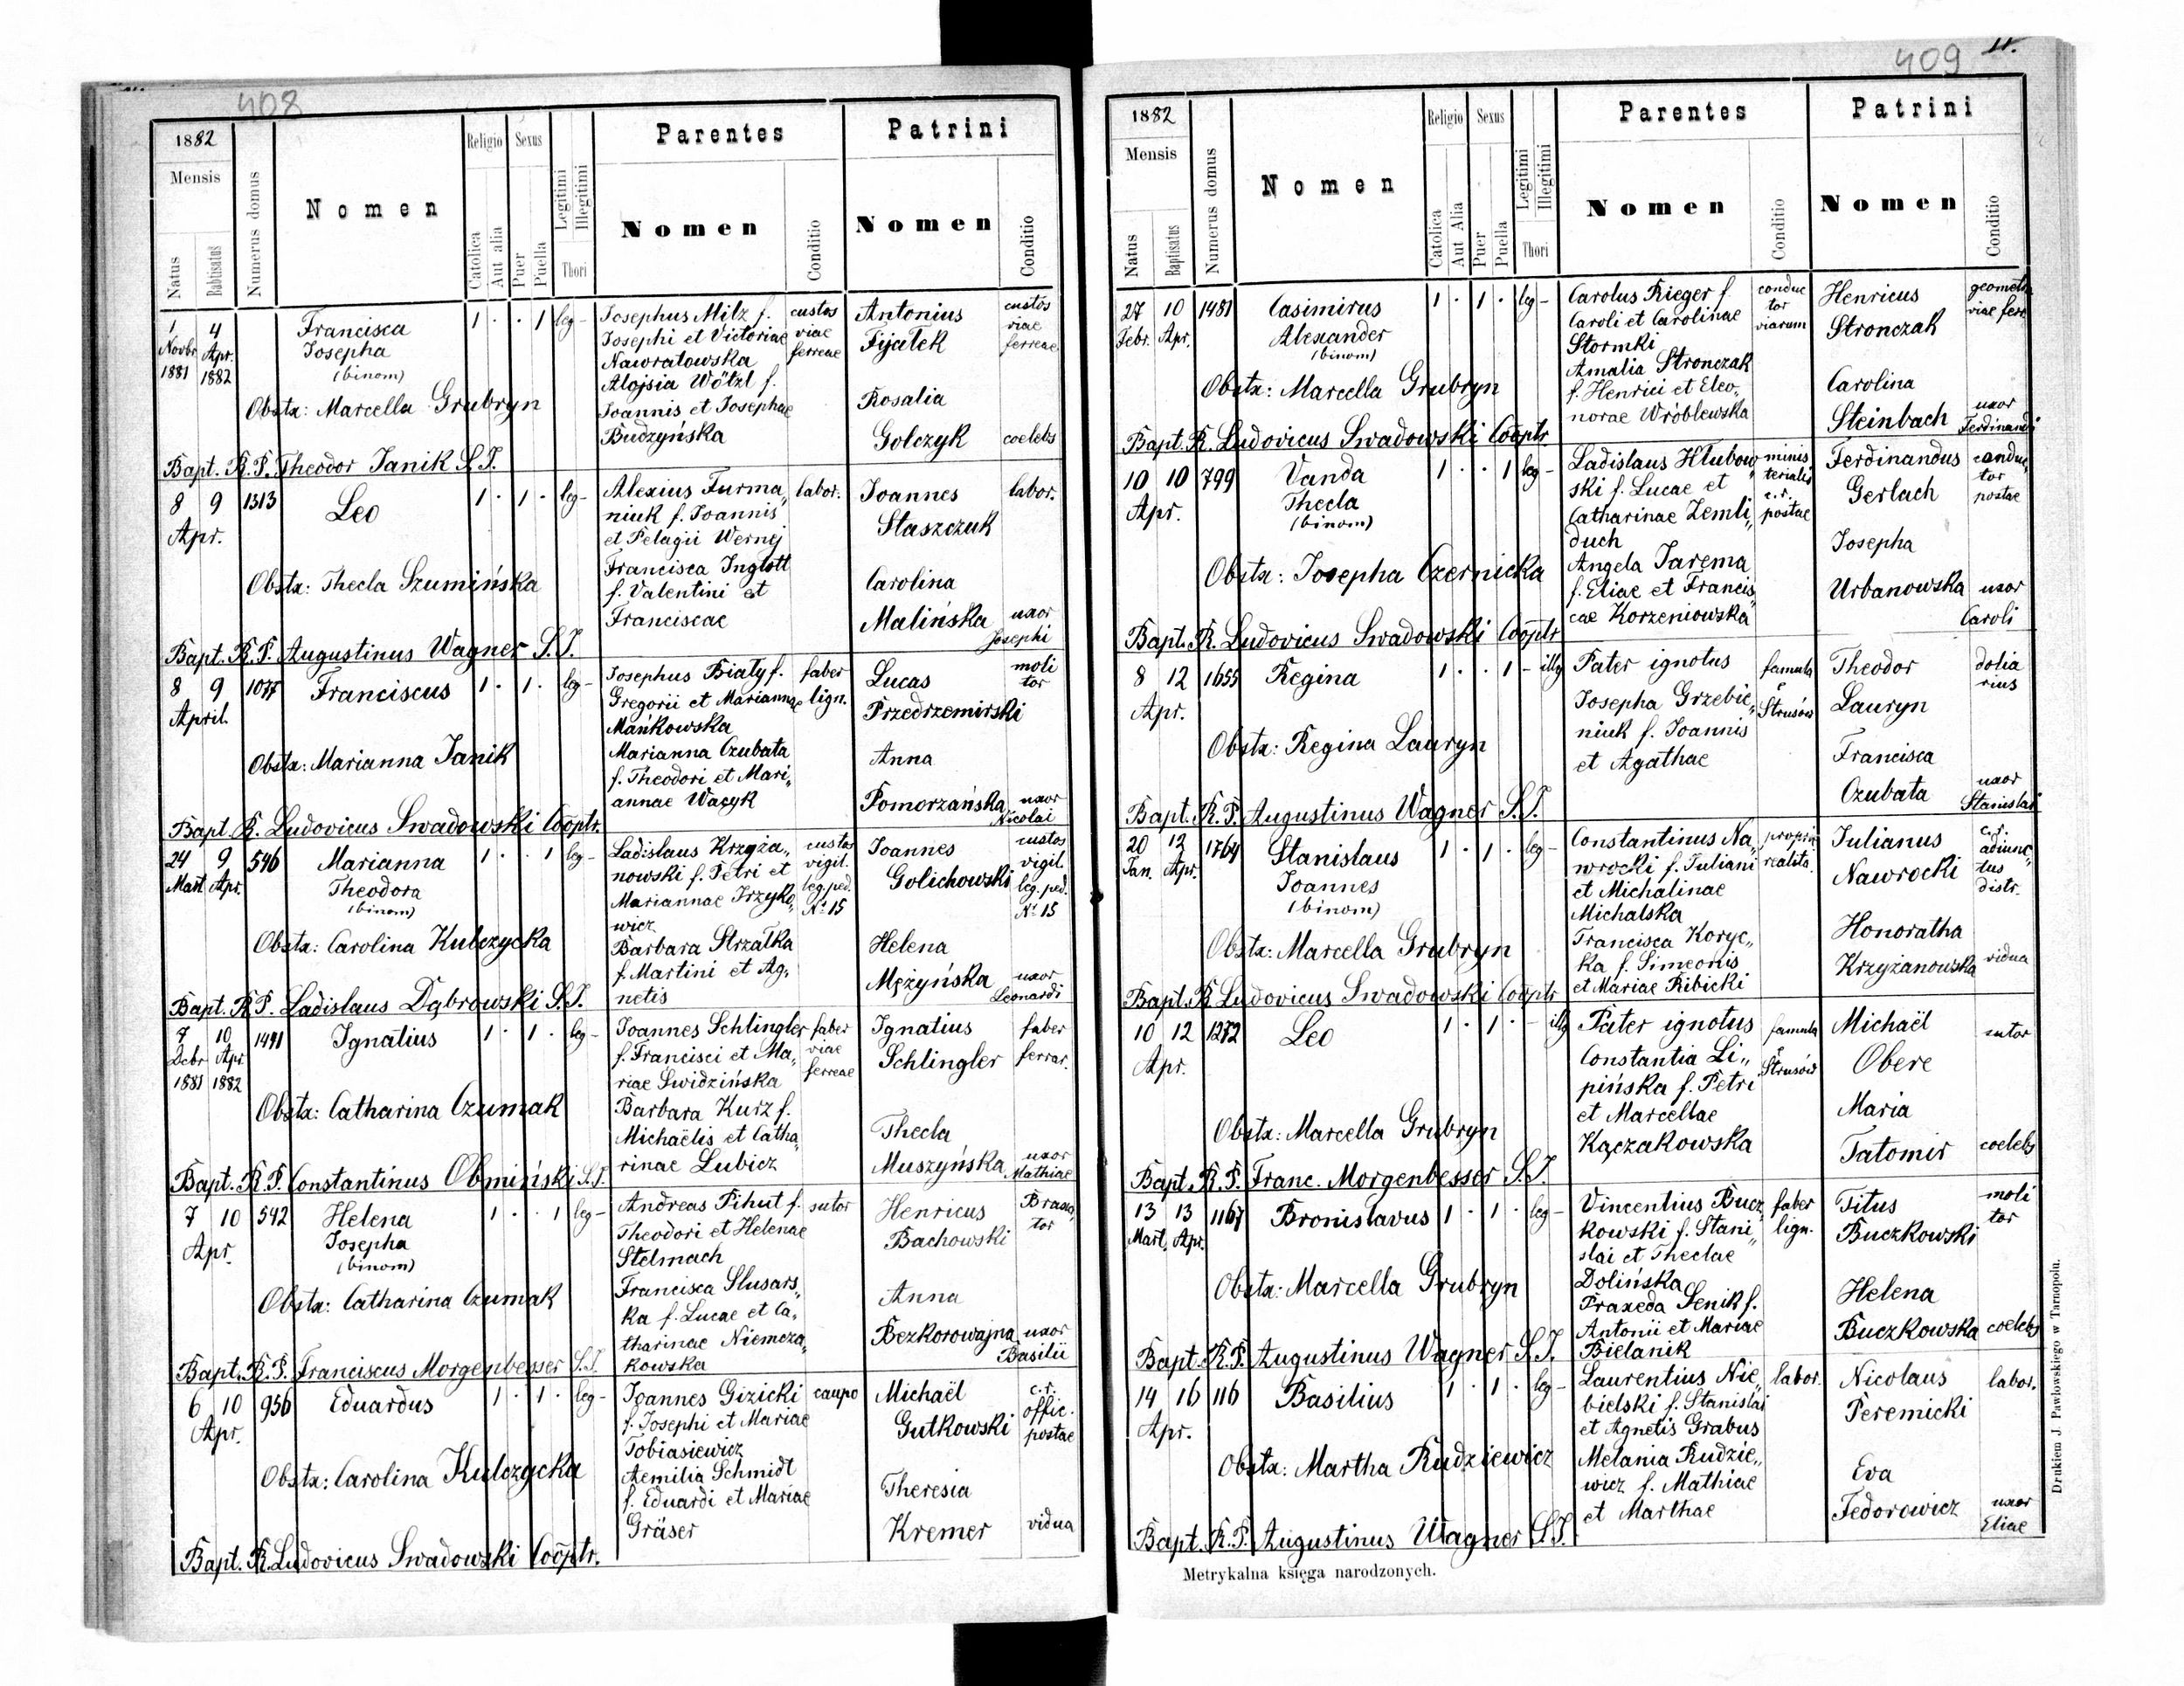 408
1882
Mensis
Natus
Babtisatus
Numerus domus
Nomen
Religio
Catolica
Aut alia
Sexus
Puer
Puella
Legitimi
Illegitimi
Thori
Parentes
Nomen
Conditio
Patrini
Nomen
Conditio
1 Novbr 1881
4 Apr. 1882
Francisca
Josepha
(binom)
1 · · 1 leg-
Josephus Milz f.
Josephi et Victoriae
Nawratowska
Alojsia Wötzl f.
Joannis et Josephae
Budzyńska
custos
viae
ferreae
Antonius
Fijałek
custos
viae
ferreae
Rosalia
Golczyk coelebs
Obstx: Marcella Grubryn
Bapt. R.P. Theodor Janik S.J.
8 9 1313
Apr.
Leo
1 · 1 · leg-
Alexius Furma„
niuk f. Joannis
et Pelagii Wernej
Francisca Inglott
f. Valentini et
Franciscae
labor.
Joannes
Staszczuk
labor.
Carolina
Malińska uxor
Josephi
Obstx: Thecla Szumińska
Bapt. R.P. Augustinus Wagner S.J.
8 9 1077
April.
Franciscus
1 · 1 · leg-
Josephus Biały f.
Gregorii et Mariannae
Mańkowska
Marianna Czubata
f. Theodori et Mari„
annae Wacyk
faber
lign.
Lucas
Przedrzemirski
moli
tor
Anna
Pomorzańska uxor
Nicolai
Obstx: Marianna Janik
Bapt. R. Ludovicus Swadowski Cooptr.
24 9 546
Mart. Apr.
Marianna
Theodora
(binom)
1 · · 1 leg-
Ladislaus Krzyża„
nowski f. Petri et
Mariannae Irzyko„
wicz
Barbara Strzałka
f. Martini et Ag„
netis
custos
vigil.
leg. ped.
No 15
Joannes
Golichowski
custos
vigil.
leg. ped.
No 15
Helena
Mężyńska uxor
Leonardi
Obstx: Carolina Kulczycka
Bapt. R.P. Ladislaus Dąbrowski S.J.
7 Debr 1881
10 Apr 1882
1491
Ignatius
1 · 1 · leg-
Joannes Schlingler
f. Francisci et Ma„
riae Swidzińska
Barbara Kurz f.
Michaëlis et Catha„
rinae Lubicz
faber
viae
ferreae
Ignatius
Schlingler
faber
ferrar.
Thecla
Muszyńska uxor
Mathiae
Obstx: Catharina Czumak
Bapt. R.P. Constantinus Obmiński S.J.
7 10 542
Apr.
Helena
Josepha
(binom)
1 · · 1 leg-
Andreas Pihut f.
Theodori et Helenae
Stelmach
Francisca Slusars„
ka f. Lucae et Ca„
tharinae Niemcza„
kowska
sutor
Henricus
Bachowski
Braxa„
tor
Anna
Bezkorowajna uxor
Basilii
Obstx: Catharina Czumak
Bapt. R.P. Franciscus Morgenbesser S.J.
6 10 956
Apr.
Eduardus
1 · 1 · leg-
Joannes Gizicki
f. Josephi et Mariae
Tobiasiewicz
Aemilia Schmidt
f. Eduardi et Mariae
Gräser
caupo
Michaël
Gutkowski
c.r.
offic.
postae
Theresia
Kremer vidua
Obstx: Carolina Kulczycka
Bapt. R. Ludovicus Swadowski Cooptr.
409
1882
Mensis
Natus
Baptisatus
Numerus domus
Nomen
Religio
Catolica
Aut Alia
Sexus
Puer
Puella
Legitimi
Illegitimi
Thori
Parentes
Nomen
Conditio
Patrini
Nomen
Conditio
27 10 1481
Febr. Apr.
Casimirus
Alexander
(binom)
1 · 1 · leg-
Carolus Rieger f.
Caroli et Carolinae
Stormki
Amalia Stronczak
f. Henrici et Eleo„
norae Wróblewska
conduc
tor
viarum
Henricus
Stronczak
geometra
viae ferr.
Carolina
Steinbach uxor
Ferdinandi
Obstx: Marcella Grubryn
Bapt. R. Ludovicus Swadowski Cooptr
10 10 799
Apr.
Vanda
Thecla
(binom)
1 · · 1 leg-
Ladislaus Hłubow„
ski f. Lucae et
Catharinae Zemli„
duch
Angela Jarema
f. Eliae et Francis„
cae Korzeniowska
minis
terialis
c.r.
postae
Ferdinandus
Gerlach
conduc„
tor
postae
Josepha
Urbanowska uxor
Caroli
Obstx: Josepha Czernicka
Bapt. R. Ludovicus Swadowski Cooptr
8 12 1655
Apr.
Regina
1 · · 1 - illg
Pater ignotus
Josepha Grzebie„
niuk f. Joannis
et Agathae
famula
e
Strusów
Theodor
Lauryn
dolia
rius
Francisca
Czubata uxor
Stanislai
Obstx: Regina Lauryn
Bapt. R.P. Augustinus Wagner S.J.
20 12 1764
Jan. Apr.
Stanislaus
Joannes
(binom)
1 · 1 · leg-
Constantinus Na„
wrocki f. Juliani
et Michalinae
Michalska
Francisca Koryc„
ka f. Simeonis
et Mariae Ribicki
proprie
realita.
Julianus
Nawrocki
c.r.
adiunc„
tus
distr.
Honoratha
Krzyżanowska vidua
Obstx: Marcella Grubryn
Bapt. R. Ludovicus Swadowski Cooptr
10 12 1272
Apr.
Leo
1 · 1 · - illg
Pater ignotus
Constantia Li„
pińska f. Petri
et Marcellae
Kączakowska
famula
e
Strusów
Michaël
Obere
sutor
Maria
Tatomir coelebs
Obstx: Marcella Grubryn
Bapt. R.P. Franc. Morgenbesser S.J.
13 13 1167
Mart. Apr.
Bronislavus
1 · 1 · leg-
Vincentius Bucz„
kowski f. Stani„
slai et Theclae
Dolińska
Praxeda Senik f.
Antonii et Mariae
Bielanik
faber
lign.
Titus
Buczkowski
moli
tor
Helena
Buczkowska coelebs
Obstx: Marcella Grubryn
Bapt. R.P. Augustinus Wagner S.J.
14 16 116
Apr.
Basilius
1 · 1 · leg-
Laurentius Nie„
bielski f. Stanislai
et Agnetis Grabus
Melania Rudzie„
wicz f. Mathiae
et Marthae
labor.
Nicolaus
Peremicki
labor.
Eva
Fedorowicz uxor
Eliae
Obstx: Martha Rudziewicz
Bapt. R.P. Augustinus Wagner S.J.
Metrykalna księga narodzonych.
Drukiem J. Pawłowskiego w Tarnopolu.